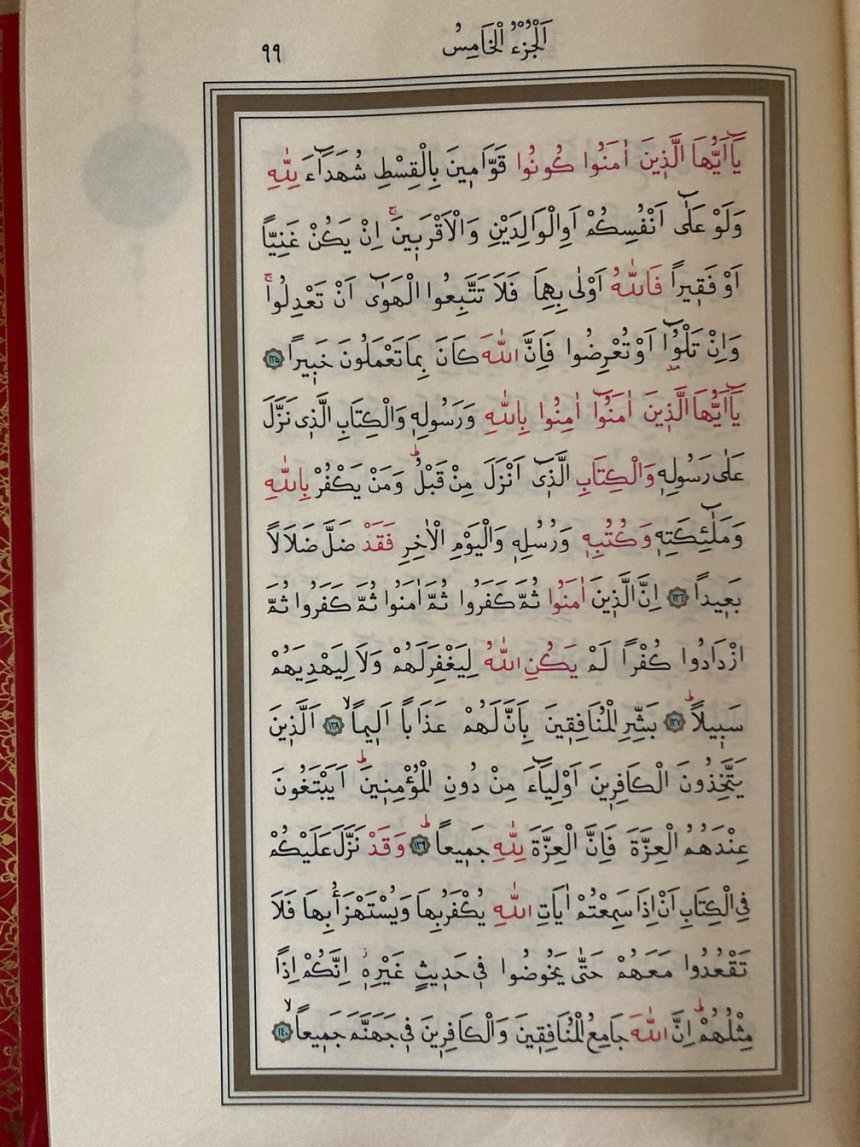 اَلْجُزْءُ الْخَامِسُ
٩٩
يَٓا اَيُّهَا الَّذ۪ينَ اٰمَنُوا كُونُوا قَوَّام۪ينَ بِالْقِسْطِ شُهَدَٓاءَ لِلّٰهِ
وَلَوْ عَلٰٓى اَنْفُسِكُمْ اَوِالْوَالِدَيْنِ وَالْاَقْرَب۪ينَۚ اِنْ يَكُنْ غَنِيًّا
اَوْ فَق۪يراً فَاللّٰهُ اَوْلٰى بِهِمَا فَلَا تَتَّبِعُوا الْهَوٰٓى اَنْ تَعْدِلُواۚ
وَاِنْ تَلْوُ۫ٓا اَوْ تُعْرِضُوا فَاِنَّ اللّٰهَ كَانَ بِمَا تَعْمَلُونَ خَب۪يراً ﴿١٣٥﴾
يَٓا اَيُّهَا الَّذ۪ينَ اٰمَنُٓوا اٰمِنُوا بِاللّٰهِ وَرَسُولِه۪ وَالْكِتَابِ الَّذ۪ي نَزَّلَ
عَلٰى رَسُولِه۪ وَالْكِتَابِ الَّذ۪ٓي اَنْزَلَ مِنْ قَبْلُۜ وَمَنْ يَكْفُرْ بِاللّٰهِ
وَمَلٰٓئِكَتِه۪ وَكُتُبِه۪ وَرُسُلِه۪ وَالْيَوْمِ الْاٰخِرِ فَقَدْ ضَلَّ ضَلَالاً
بَع۪يداً ﴿١٣٦﴾ اِنَّ الَّذ۪ينَ اٰمَنُوا ثُمَّ كَفَرُوا ثُمَّ اٰمَنُوا ثُمَّ كَفَرُوا ثُمَّ
ازْدَادُوا كُفْراً لَمْ يَكُنِ اللّٰهُ لِيَغْفِرَ لَهُمْ وَلَا لِيَهْدِيَهُمْ
سَب۪يلاًۜ ﴿١٣٧﴾ بَشِّرِ الْمُنَافِق۪ينَ بِاَنَّ لَهُمْ عَذَاباً اَل۪يماًۙ ﴿١٣٨﴾ اَلَّذ۪ينَ
يَتَّخِذُونَ الْكَافِر۪ينَ اَوْلِيَٓاءَ مِنْ دُونِ الْمُؤْمِن۪ينَۜ اَيَبْتَغُونَ
عِنْدَهُمُ الْعِزَّةَ فَاِنَّ الْعِزَّةَ لِلّٰهِ جَم۪يعاًۜ ﴿١٣٩﴾ وَقَدْ نَزَّلَ عَلَيْكُمْ
فِي الْكِتَابِ اَنْ اِذَا سَمِعْتُمْ اٰيَاتِ اللّٰهِ يُكْفَرُ بِهَا وَيُسْتَهْزَأُ بِهَا فَلَا
تَقْعُدُوا مَعَهُمْ حَتّٰى يَخُوضُوا ف۪ي حَد۪يثٍ غَيْرِه۪ۘ اِنَّكُمْ اِذاً
مِثْلُهُمْۜ اِنَّ اللّٰهَ جَامِعُ الْمُنَافِق۪ينَ وَالْكَافِر۪ينَ ف۪ي جَهَنَّمَ جَم۪يعاًۙ ﴿١٤٠﴾